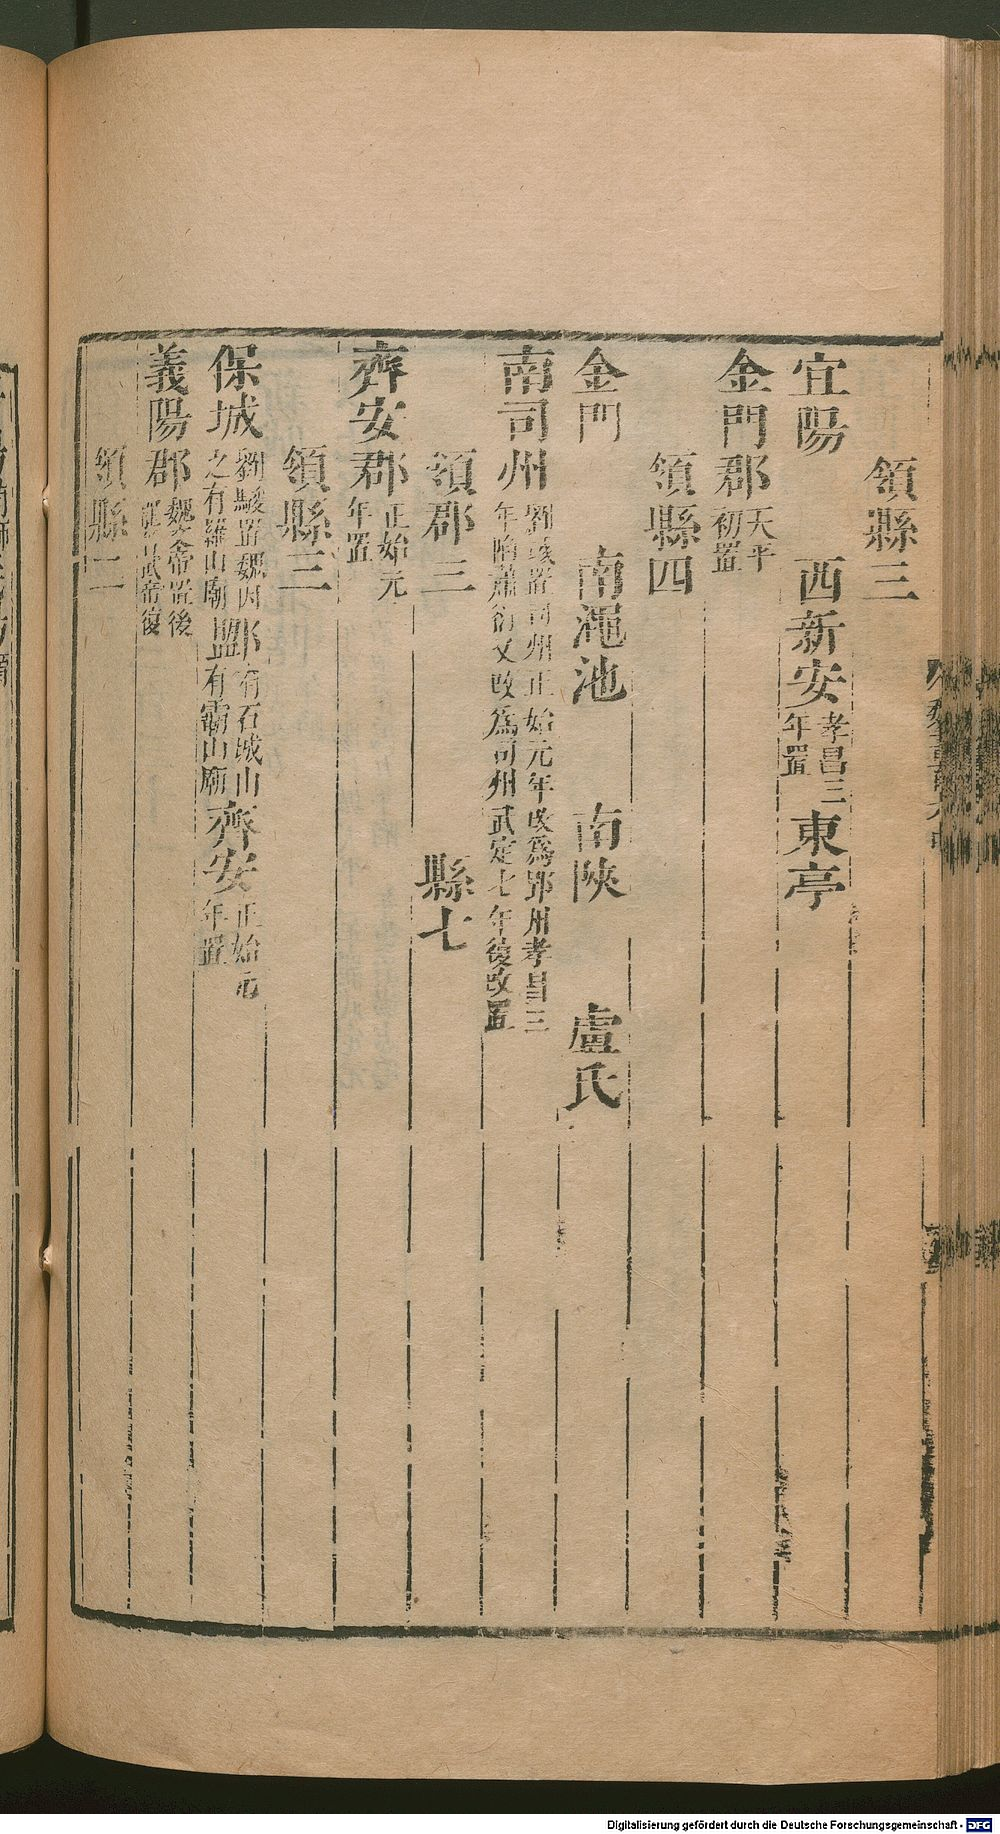 領縣三
宜陽 西新安孝昌三年置東亭
金門郡天平初置
領縣四
金門 南澠池 南陝 盧氏
南司州劉彧置司州正始元年改爲郢州孝昌三年陷蕭衍又改爲司州武定七年復改置
領郡三 縣七
齊安郡正始元年置
領縣三
保城劉駿置魏因之有羅山廟鄳有石城山有霸山廟齊安正始元年置
義陽郡魏文帝置後晉武帝復
領縣二
Digitalisierung gefördert durch die Deutsche Forschungsgemeinschaft - DFG